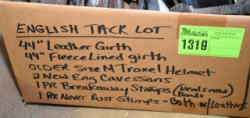 ENGLISH TACK LOT
1319
44" Leather Girth
44" Fleece Lined girth
OLDER Size N Troxel Helmet
2 New Eng Cavessons
1 PR Breakaway Stirrups (needs new Bands)
1 PR Never Rust Stirrups - Both w/ Leathers